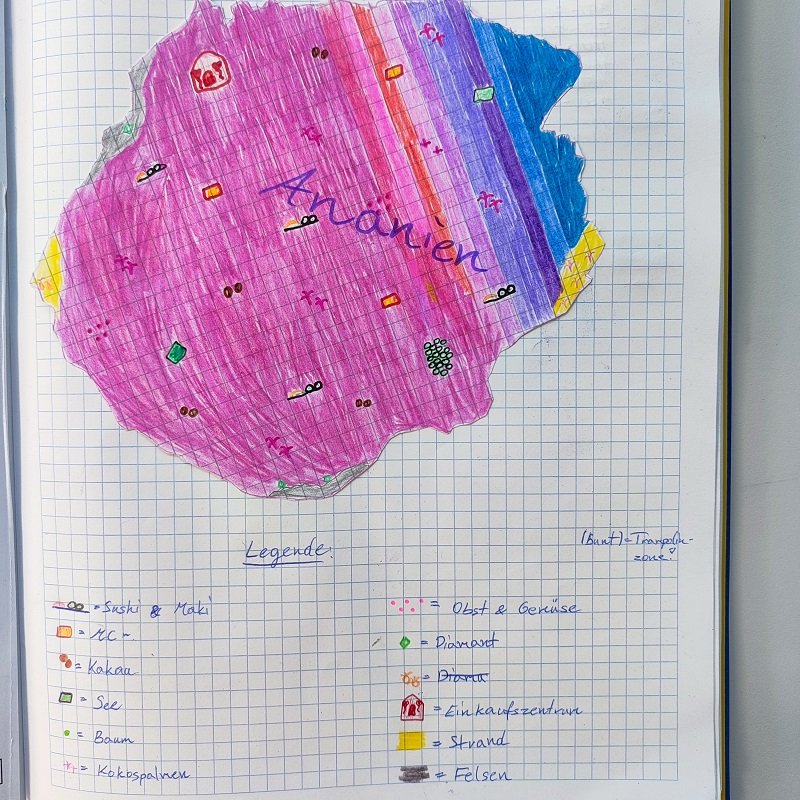 Ananien
Legende:
(Bunt) = Trampolin-
zone!
= Sushi & Maki
= MC
= Kakau
= See
= Baum
= Kokospalmen
= Obst & Gemüse
= Diamant
= Diama
= Einkaufszentrum
= Strand
= Felsen